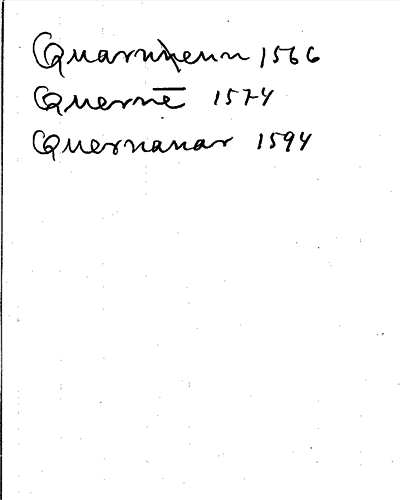 Quarnneun 1566
Quernē 1574
Quernanar 1594